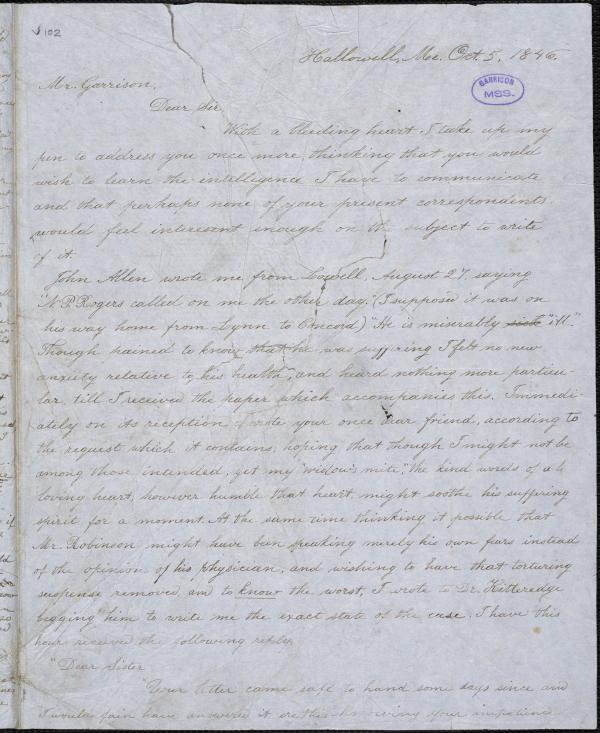 102
Hallowell, Me. Oct. 5, 1846.
GARRISON
MSS.
Mr. Garrison,
Dear Sir,
With a bleeding heart I take up my
pen to address you once more, thinking that you would
wish to learn the intelligence I have to communicate
and that perhaps none of your present correspondents
would feel interest enough on the subject to write
of it.
John Allen wrote me from Lowell, August 27, saying
"N. P. Rogers called on me the other day. (I suppose it was on
his way home from Lynn to Concord) "He is miserably sick "ill."
Though pained to know that he was suffring I felt no new
anxiety relative to his health, and heard nothing more particu-
lar till I received the paper which accompanies this. Immedi-
ately on its reception I wrote your once dear friend, according to
the request which it contains, hoping that though I might not be
among those intended, yet my "widow's mite," the kind words of a
loving heart, however humble that heart, might soothe his suffring
spirit for a moment. At the same time thinking it possible that
Mr. Robinson might have been speaking merely his own fears instead
of the opinion of his physician, and wishing to have that torturing
suspense removed and to know the worst, I wrote to Dr. Kitteredge
begging him to write me the exact state of the case. I have this
hour received the following reply.
"Dear Sister
"Your letter came safe to hand some days since and
I would fain have answered it ere this knowing your impatience